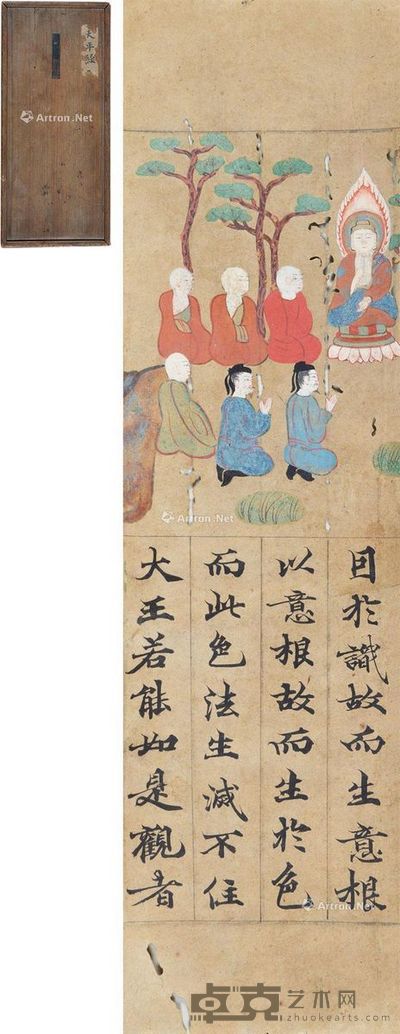 太平經
Artron.Net
Artron.Net
因於識故而生意根
以意根故而生於色
而此色法生滅不住
大王若能如是觀者
Artron.Net
卓克艺术网
zhuokearts.com